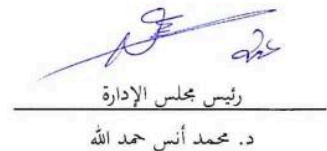 رئيس مجلس الإدارة
د. محمد أنس حمد الله